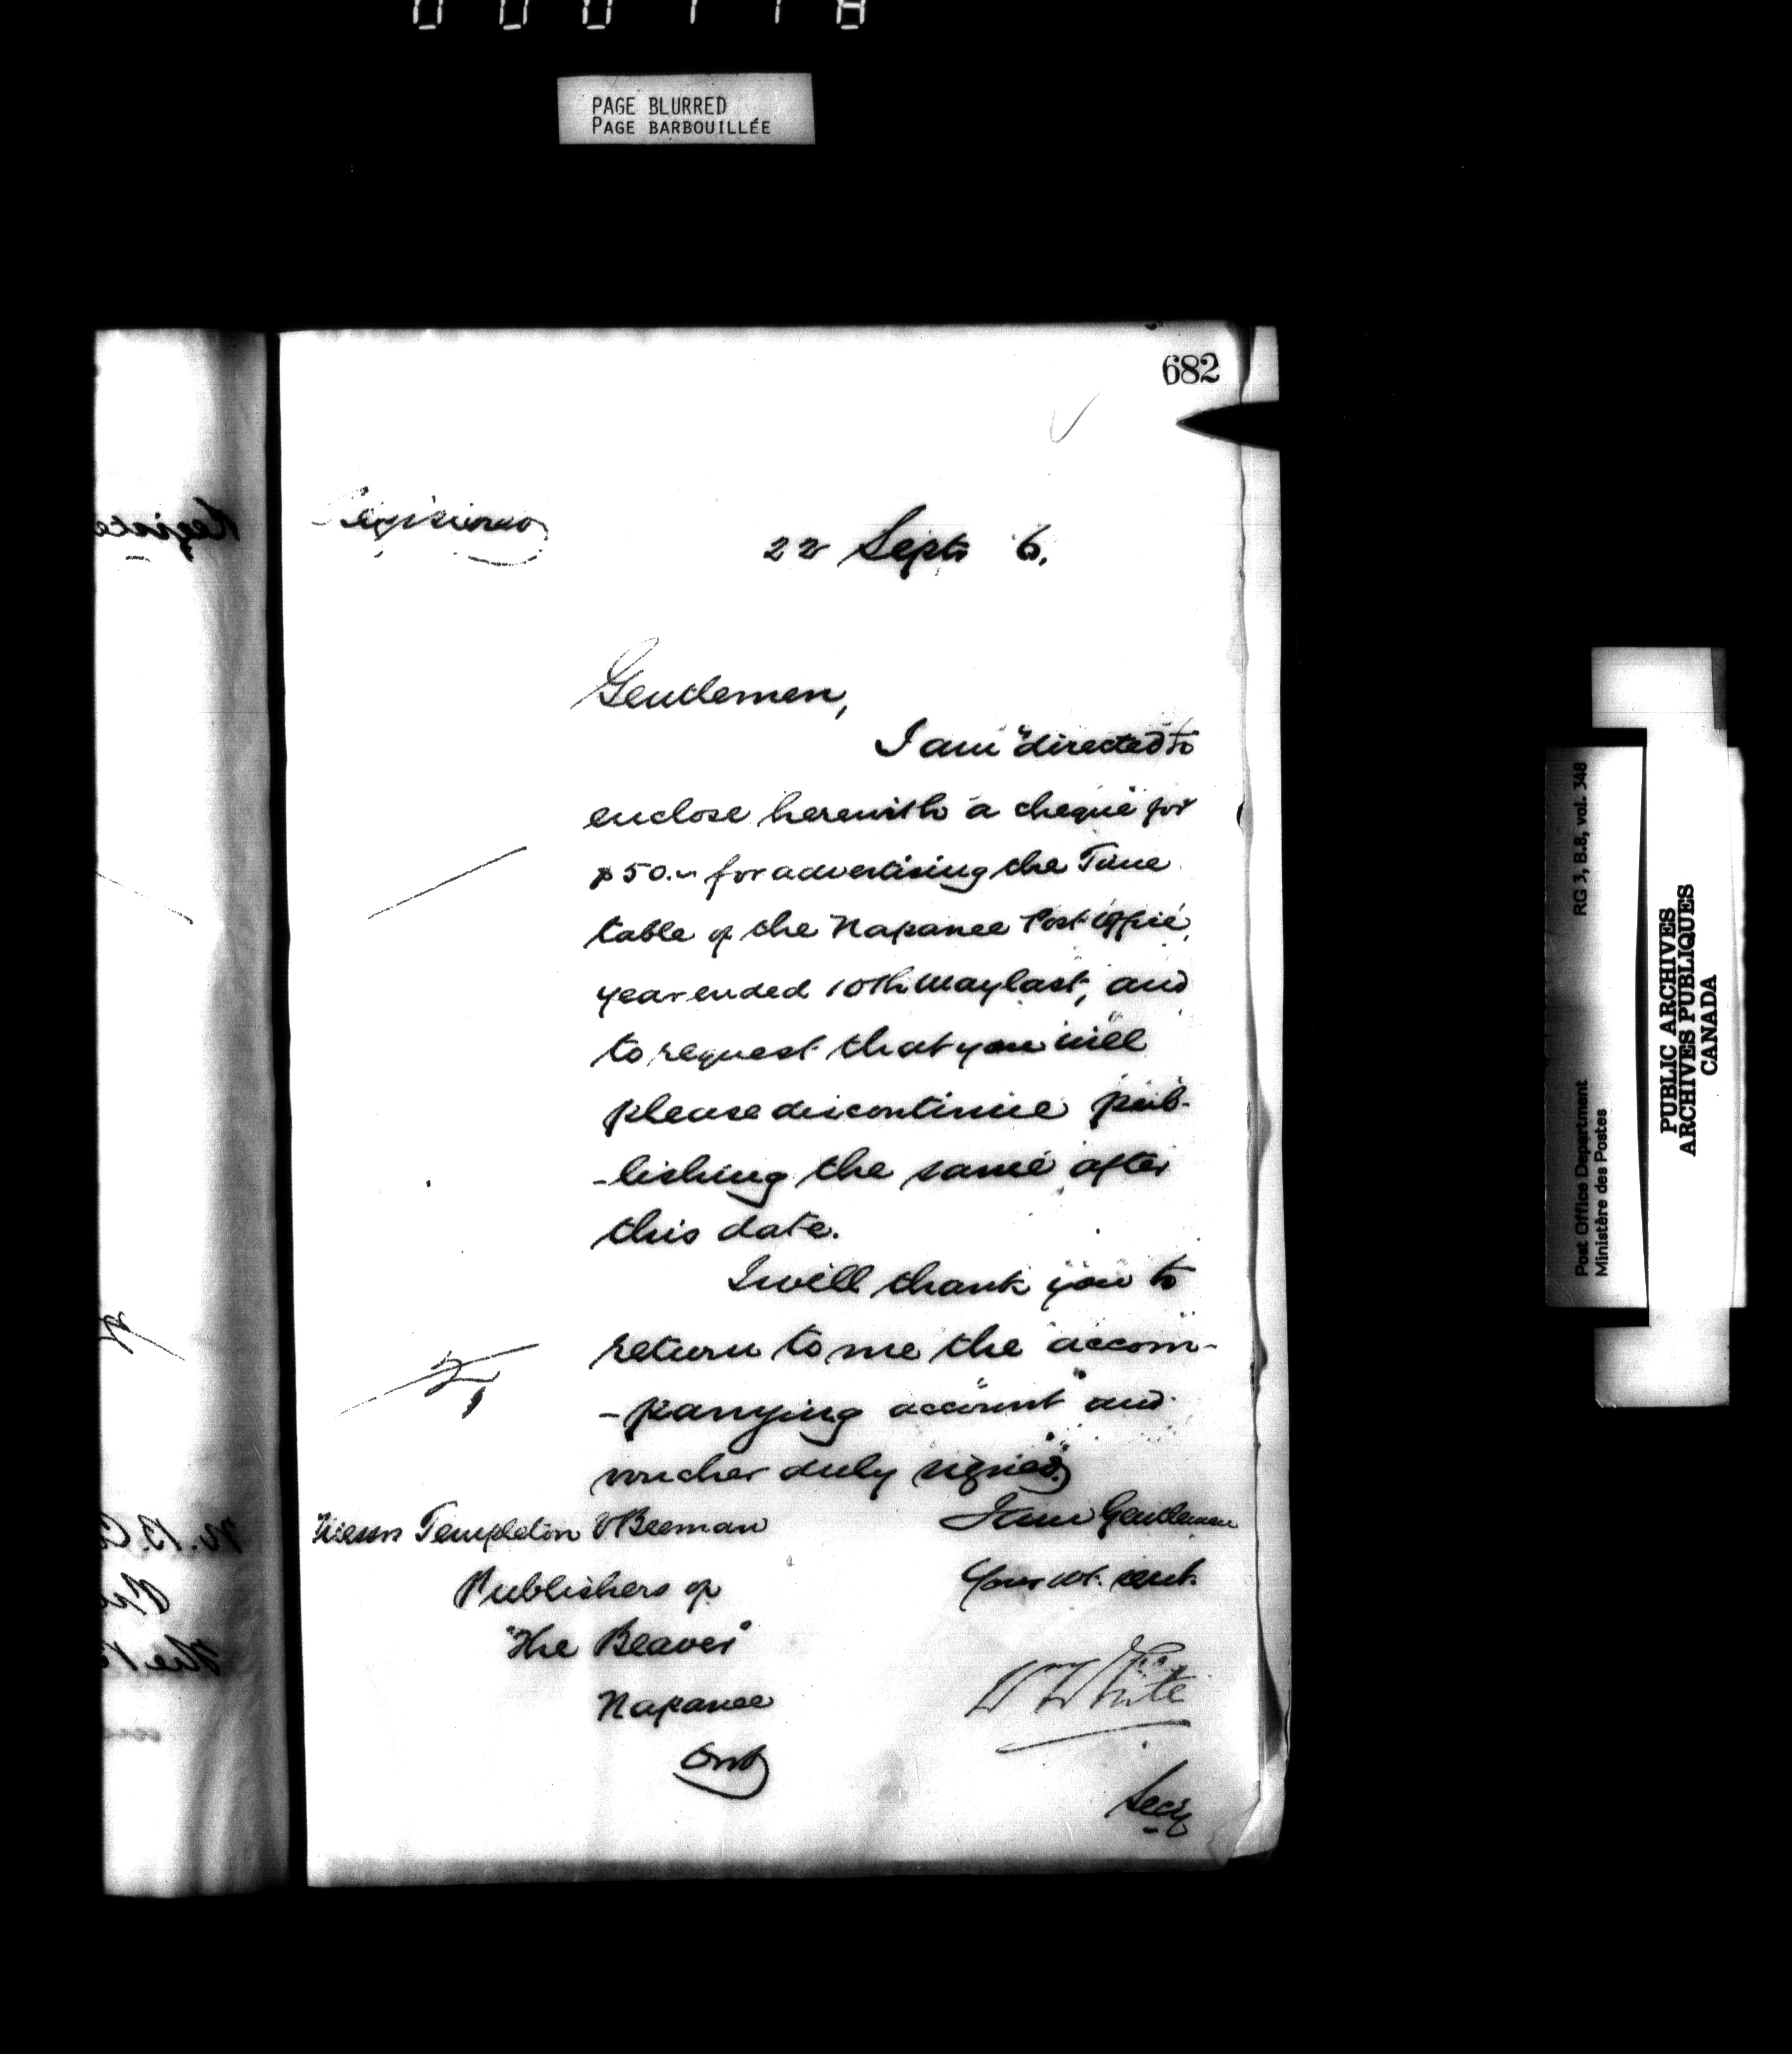 PAGE BLURRED
PAGE BARBOUILLÉE
682
Registered
22 Septr 6.
Gentlemen,
I am directed to
enclose herewith a cheque for
$50.00 for advertising the Time
table of the Napanee Post Office,
year ended 10th May last, and
to request that you will
please discontinue pub-
-lishing the same after
this date.
I will thank you to
return to me the accom-
-panying account and
voucher duly signed.
I am Gentlemen
Your obt. servt.
W White
Secy
Messrs Templeton & Beeman
Publishers of
"The Beaver"
Napanee
Ont
RG 3, B.8, vol. 348
Post Office Department
Ministère des Postes
PUBLIC ARCHIVES
ARCHIVES PUBLIQUES
CANADA